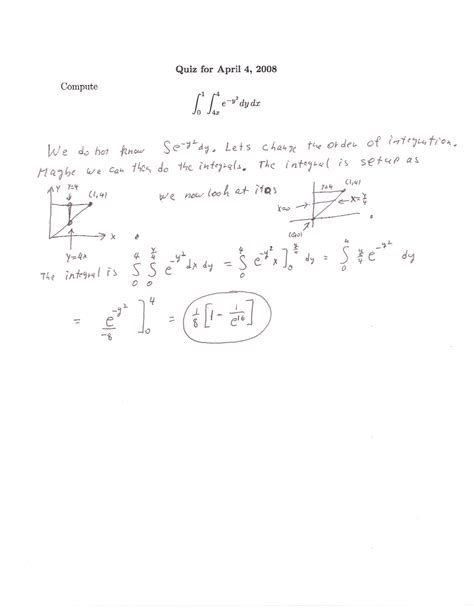 Quiz for April 4, 2008
Compute
∫₀¹ ∫₄ₓ⁴ e^{-y²} dy dx
We do not know ∫e^{-y²}dy. Lets change the order of integration.
Maybe we can then do the integrals. The integral is setup as
y y=4 (1,4) x y=4x
we now look at it as
y=4 (1,4) x=0 x=y/4 (0,0)
The integral is ∫₀⁴ ∫₀^{y/4} e^{-y²} dx dy = ∫₀⁴ e^{-y²} x ]₀^{y/4} dy = ∫₀⁴ y/4 e^{-y²} dy
= e^{-y²}/-8 ]₀⁴ = 1/8 [1 - 1/e^{16}]